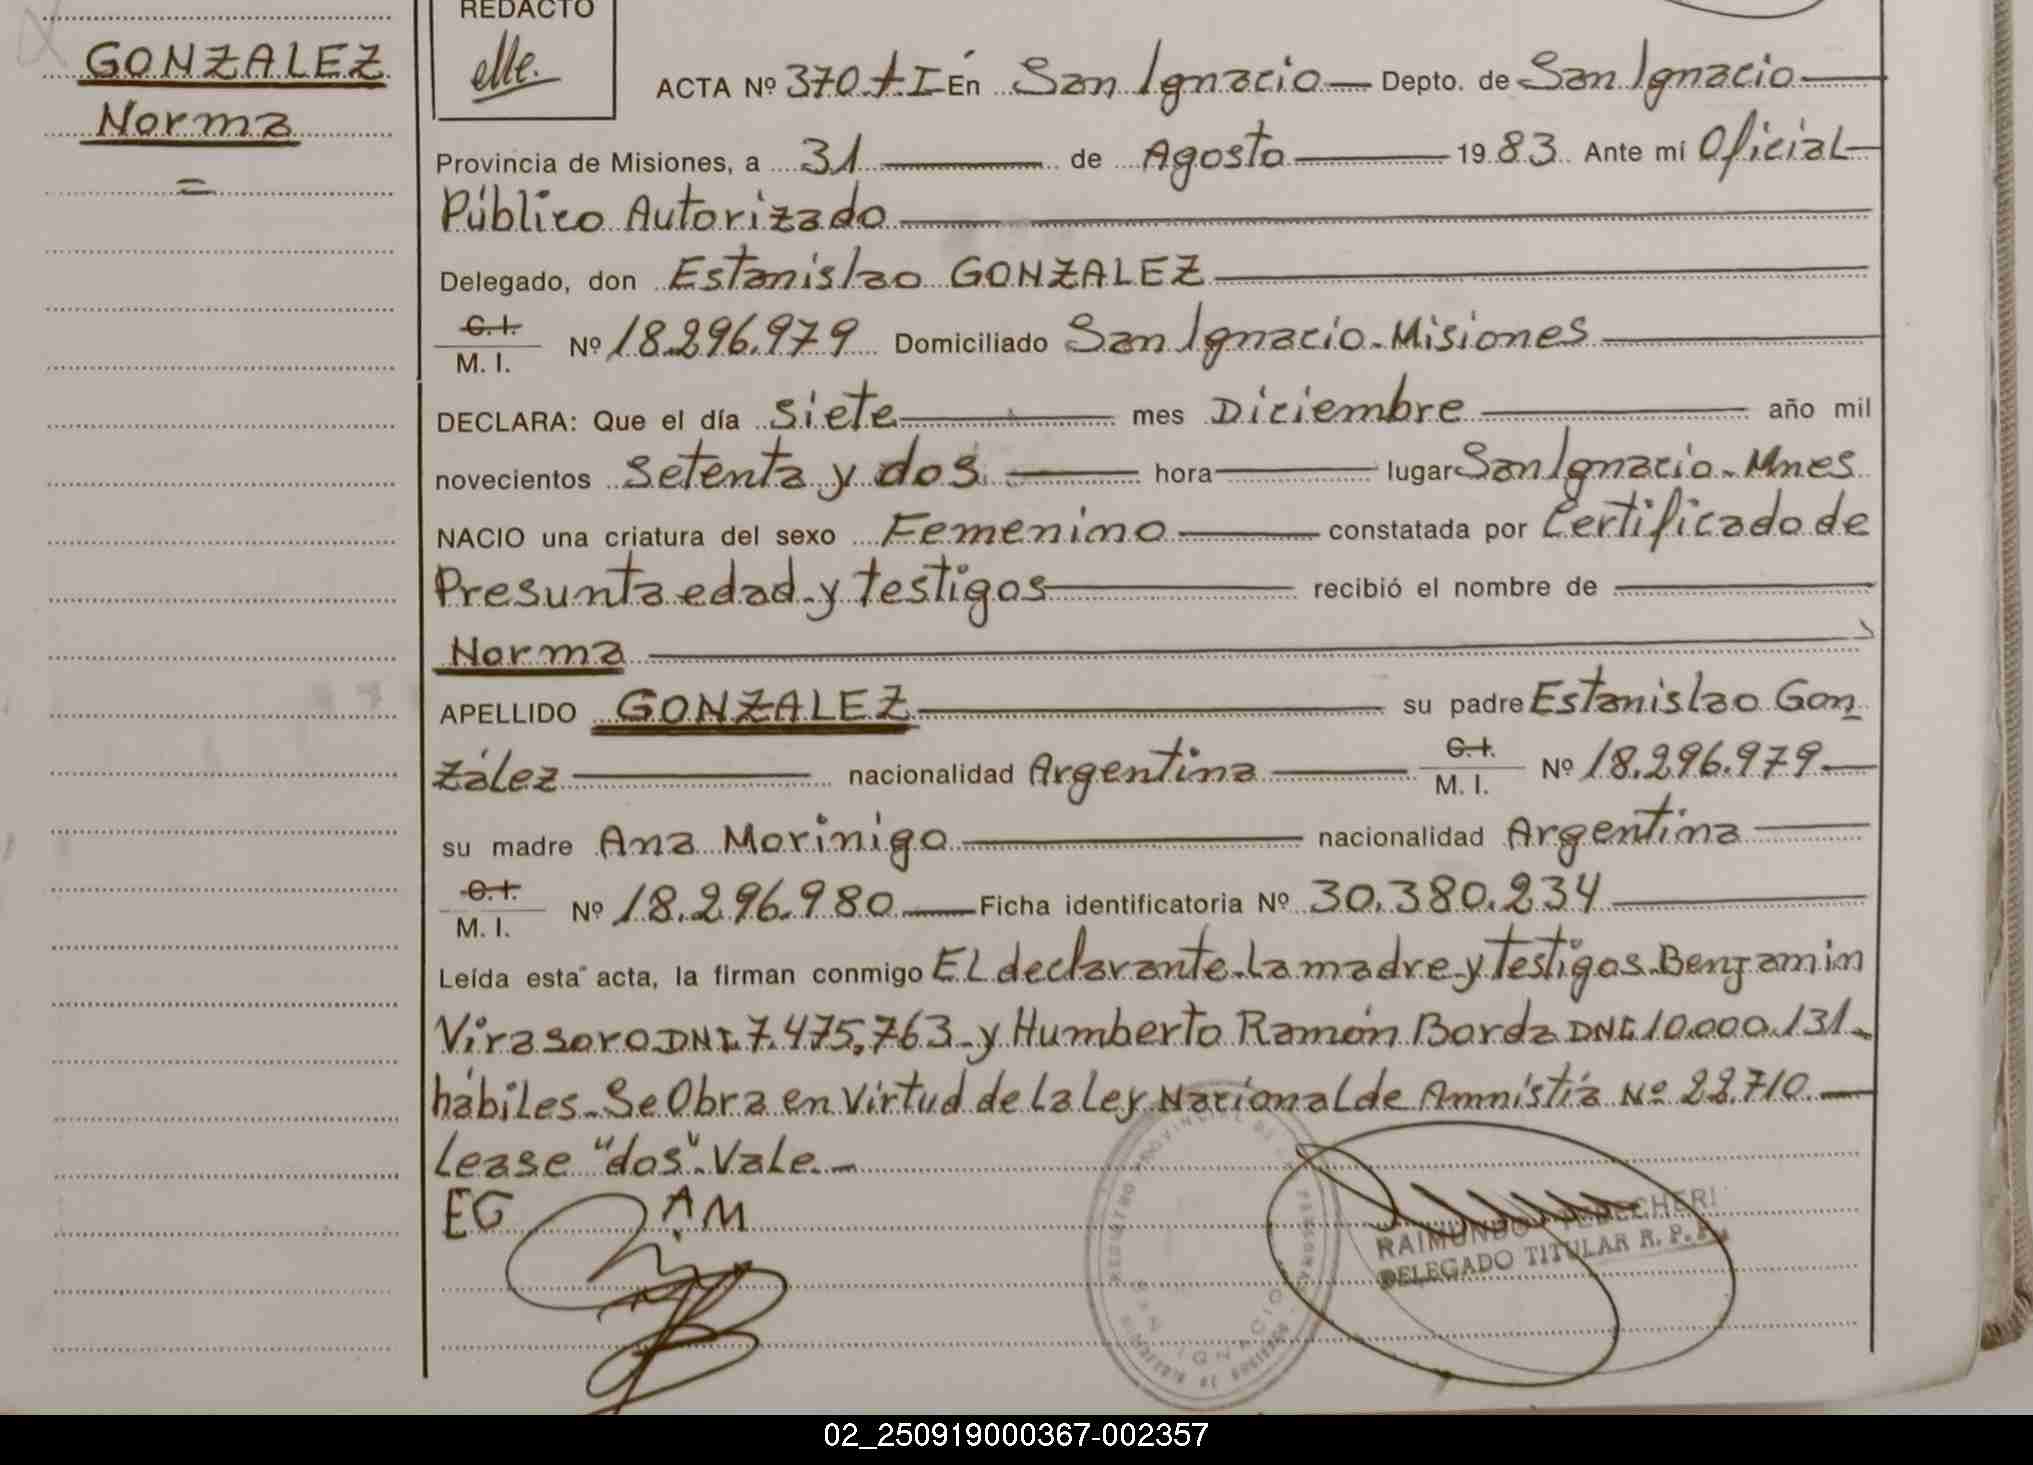 REDACTO
GONZALEZ
Norma
=
ACTA Nº 370. t. I En San Ignacio — Depto. de San Ignacio
Provincia de Misiones, a 31 de Agosto 1983. Ante mí Oficial
Público Autorizado
Delegado, don Estanislao GONZALEZ
C. I. / M. I. Nº 18.296.979 Domiciliado San Ignacio. Misiones
DECLARA: Que el día Siete mes Diciembre año mil
novecientos Setenta y dos hora lugar San Ignacio. Mnes
NACIO una criatura del sexo Femenino constatada por Certificado de
Presunta edad y testigos recibió el nombre de
Norma
APELLIDO GONZALEZ su padre Estanislao Gon
zález nacionalidad Argentina C. I. / M. I. Nº 18.296.979
su madre Ana Morinigo nacionalidad Argentina
C. I. / M. I. Nº 18.296.980 Ficha identificatoria Nº 30.380.234
Leída esta acta, la firman conmigo El declarante. La madre y testigos. Benjamin
Virasoro DNI. 7.475.763. y Humberto Ramón Borda DNI. 10.000.131.
hábiles. Se Obra en Virtud de la Ley Nacional de Amnistía Nº 22.710.
Lease "dos". Vale.
EG A.M
REGISTRO PROVINCIAL DE LAS PERSONAS
SAN IGNACIO
MINISTERIO DE GOBIERNO
RAIMUNDO
DELEGADO TITULAR R. P. P.
02_250919000367-002357